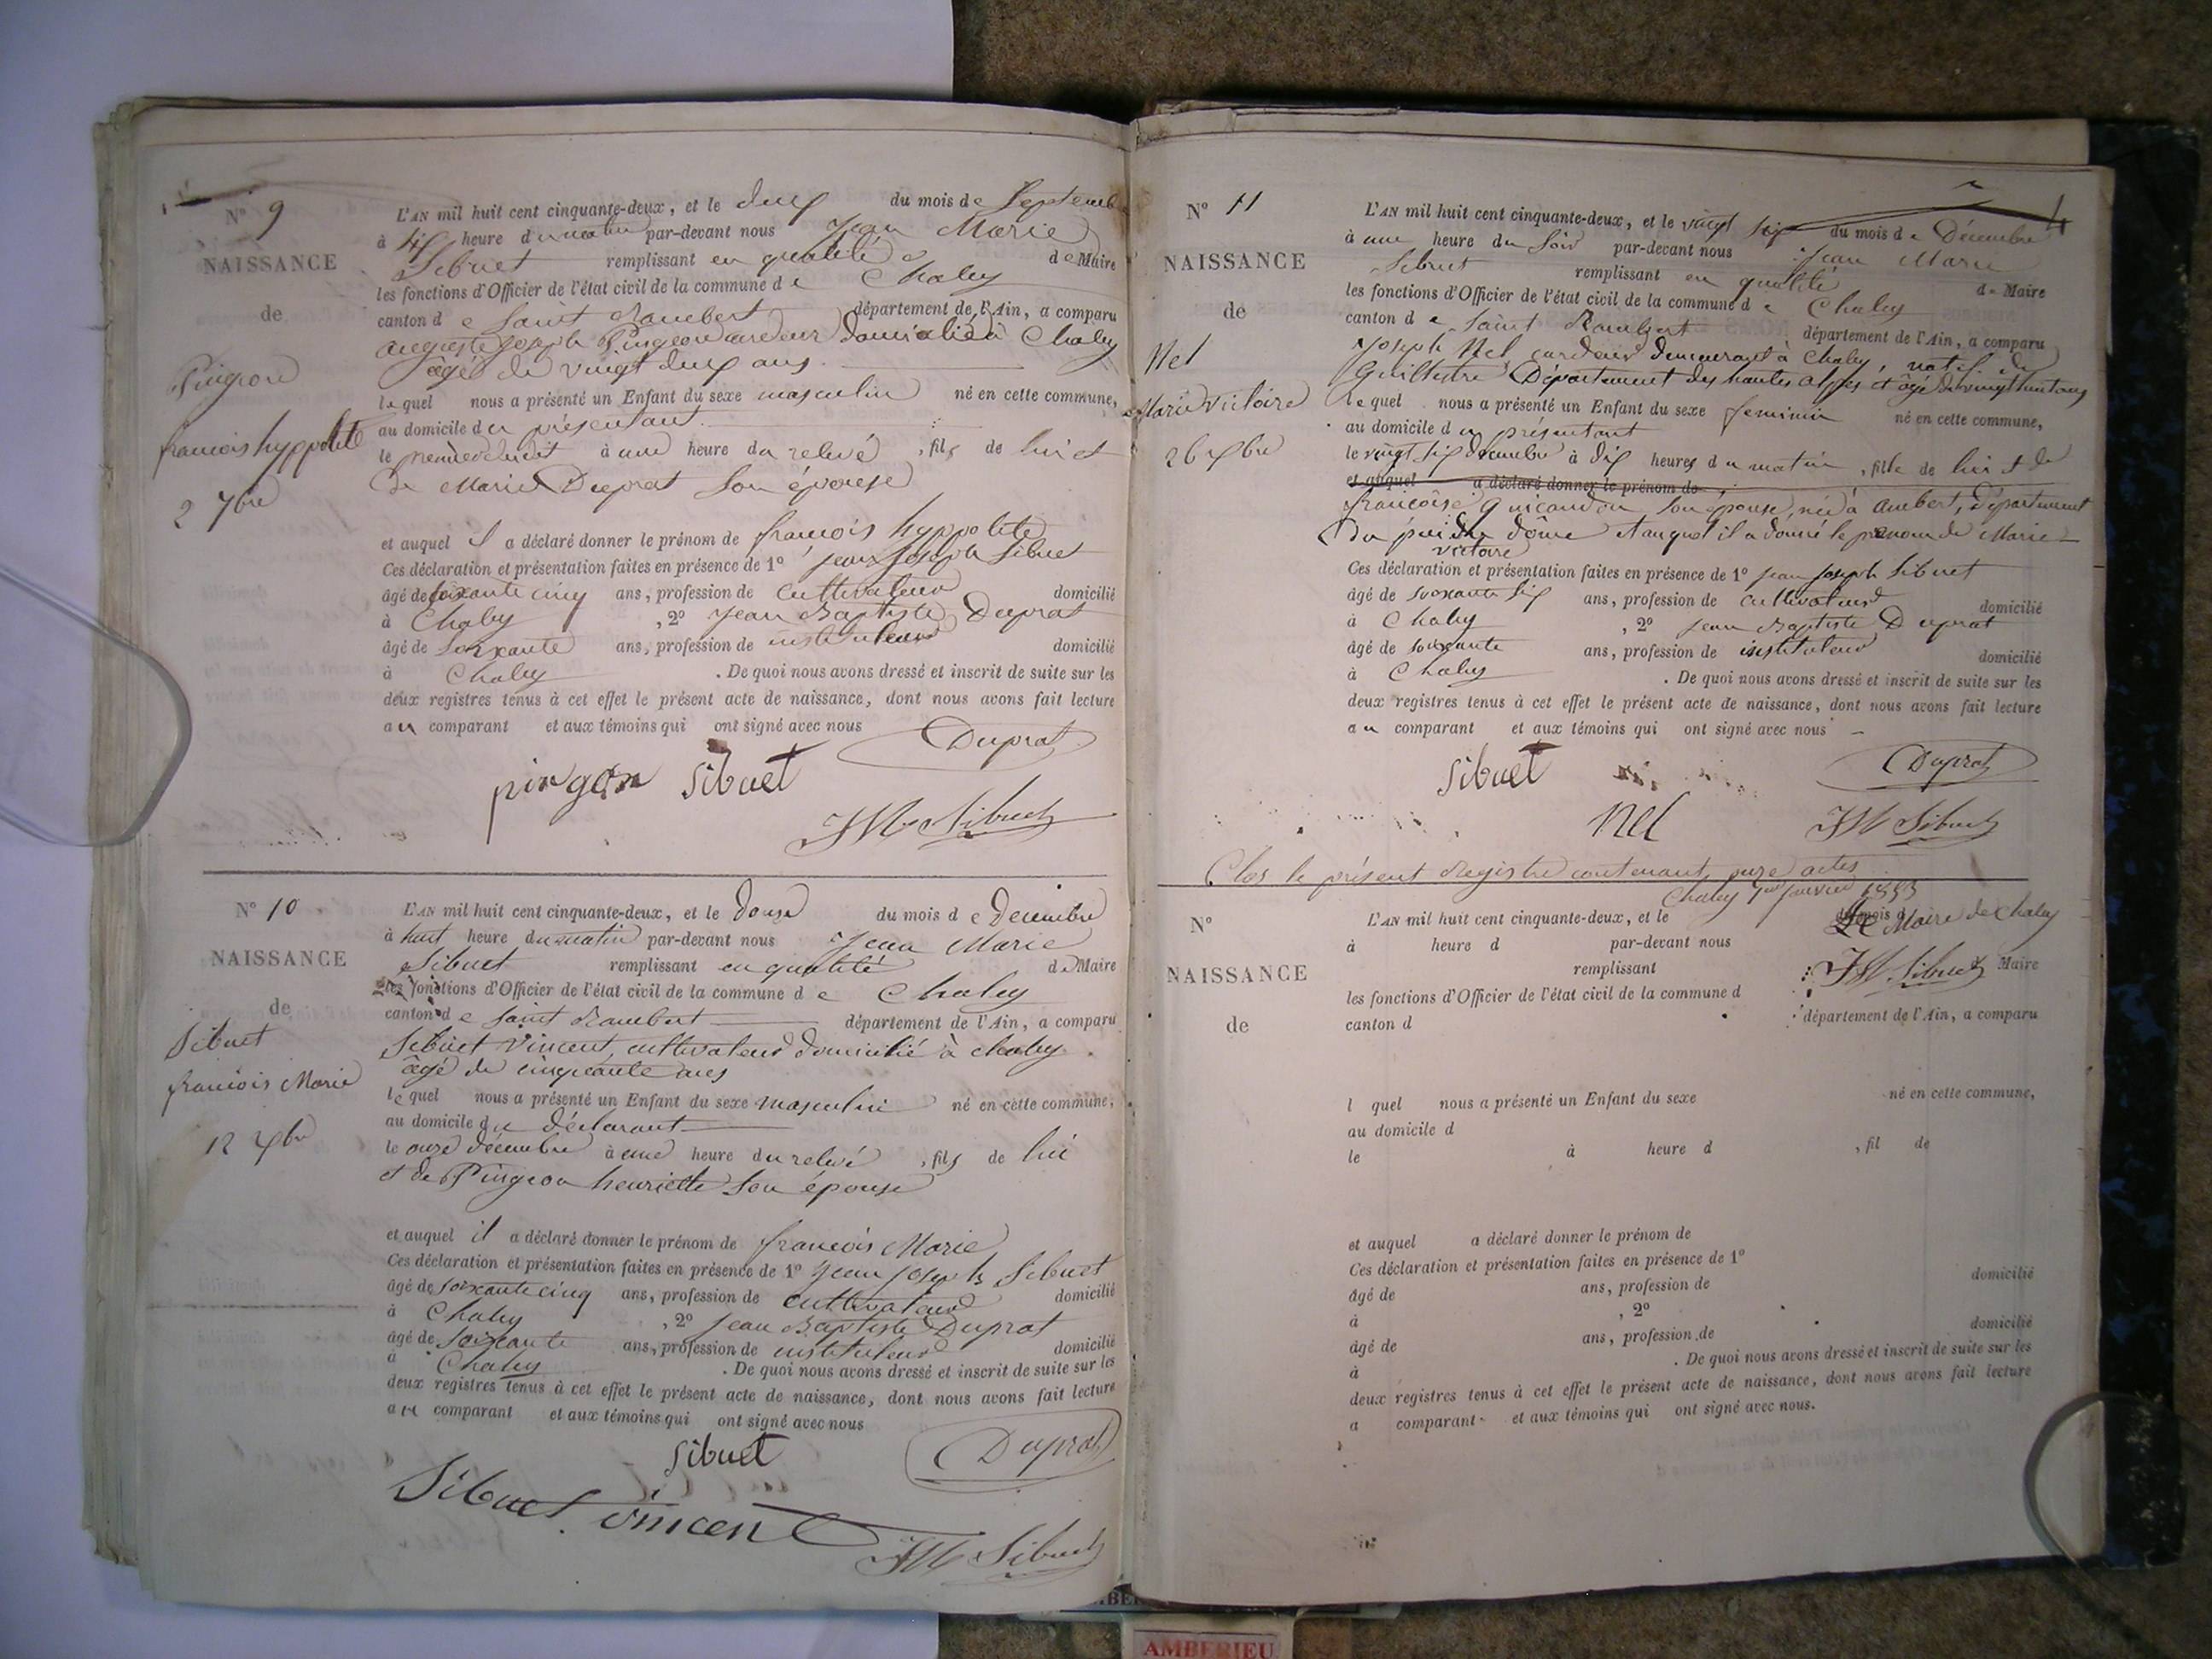 N° 9
NAISSANCE
de
Pingeon
francois hyppolite
2 7bre
L'AN mil huit cent cinquante-deux, et le deux du mois de Septemb
à six heure du matin par-devant nous Jean Marie
Sibuet remplissant en qualité de Maire
les fonctions d'Officier de l'état civil de la commune de Chaley
canton de Saint Rambert département de l'Ain, a comparu
auguste joseph Pingeon cardeur domicilié à Chaley
âgé de vingt deux ans
lequel nous a présenté un Enfant du sexe masculin né en cette commune,
au domicile du présentant
le à une heure du relevé, fils de lui et
de Marie Duprat son épouse
et auquel il a déclaré donner le prénom de francois hyppolite
Ces déclaration et présentation faites en présence de 1° jean joseph Sibuet
âgé de soixante cinq ans, profession de cultivateur domicilié
à Chaley, 2° jean Baptiste Duprat
âgé de soixante ans, profession de instituteur domicilié
à Chaley. De quoi nous avons dressé et inscrit de suite sur les
deux registres tenus à cet effet le présent acte de naissance, dont nous avons fait lecture
au comparant et aux témoins qui ont signé avec nous
Duprat
pingon Sibuet
JM Sibuet
N° 10
NAISSANCE
de
Sibuet
francois Marie
12 xbre
L'AN mil huit cent cinquante-deux, et le douze du mois de Decembre
à huit heure du matin par-devant nous Jean Marie
Sibuet remplissant en qualité de Maire
les fonctions d'Officier de l'état civil de la commune de Chaley
canton de Saint Rambert département de l'Ain, a comparu
Sibuet Vincent, cultivateur domicilié à chaley
âgé de cinquante ans
lequel nous a présenté un Enfant du sexe masculin né en cette commune,
au domicile du déclarant
le onze décembre à une heure du relevé, fils de lui
et de Pingeon henriette son épouse
et auquel il a déclaré donner le prénom de francois Marie
Ces déclaration et présentation faites en présence de 1° jean joseph Sibuet
âgé de soixante cinq ans, profession de cultivateur domicilié
à Chaley, 2° jean Baptiste Duprat
âgé de soixante ans, profession de instituteur domicilié
à Chaley. De quoi nous avons dressé et inscrit de suite sur les
deux registres tenus à cet effet le présent acte de naissance, dont nous avons fait lecture
au comparant et aux témoins qui ont signé avec nous
Sibuet Duprat
Sibuet vincent
JM Sibuet
N° 11
NAISSANCE
de
Nel
Marie Victoire
26 xbre
L'AN mil huit cent cinquante-deux, et le vingt six du mois de Décembre
à une heure du soir par-devant nous Jean Marie
Sibuet remplissant en qualité de Maire
les fonctions d'Officier de l'état civil de la commune de Chaley
canton de Saint Rambert département de l'Ain, a comparu
Joseph Nel cardeur demeurant à Chaley, natif de
Guillestre Département des hautes alpes et âgé de vingt huit ans
lequel nous a présenté un Enfant du sexe feminin né en cette commune,
au domicile du présentant
le vingt six decembre à dix heures du matin, fille de lui et de
et auquel a déclaré donner le prénom de
francoise son épouse, née à ambert, Département
du puis de dôme et auquel il a donné le prénom de Marie
victoire
Ces déclaration et présentation faites en présence de 1° jean joseph Sibuet
âgé de soixante six ans, profession de cultivateur domicilié
à Chaley, 2° jean Baptiste Duprat
âgé de soixante ans, profession de instituteur domicilié
à Chaley. De quoi nous avons dressé et inscrit de suite sur les
deux registres tenus à cet effet le présent acte de naissance, dont nous avons fait lecture
au comparant et aux témoins qui ont signé avec nous
Sibuet Duprat
Nel JM Sibuet
Clos le présent Registre contenant onze actes
Chaley 1er janvier 1853
Le Maire de Chaley
JM Sibuet
N°
NAISSANCE
de
L'AN mil huit cent cinquante-deux, et le du mois d
à heure d par-devant nous
remplissant d Maire
les fonctions d'Officier de l'état civil de la commune d
canton d département de l'Ain, a comparu
l quel nous a présenté un Enfant du sexe né en cette commune,
au domicile d
le à heure d , fil de
et auquel a déclaré donner le prénom de
Ces déclaration et présentation faites en présence de 1°
âgé de ans, profession de domicilié
à , 2°
âgé de ans, profession de domicilié
à . De quoi nous avons dressé et inscrit de suite sur les
deux registres tenus à cet effet le présent acte de naissance, dont nous avons fait lecture
a comparant et aux témoins qui ont signé avec nous.
AMBERIEU